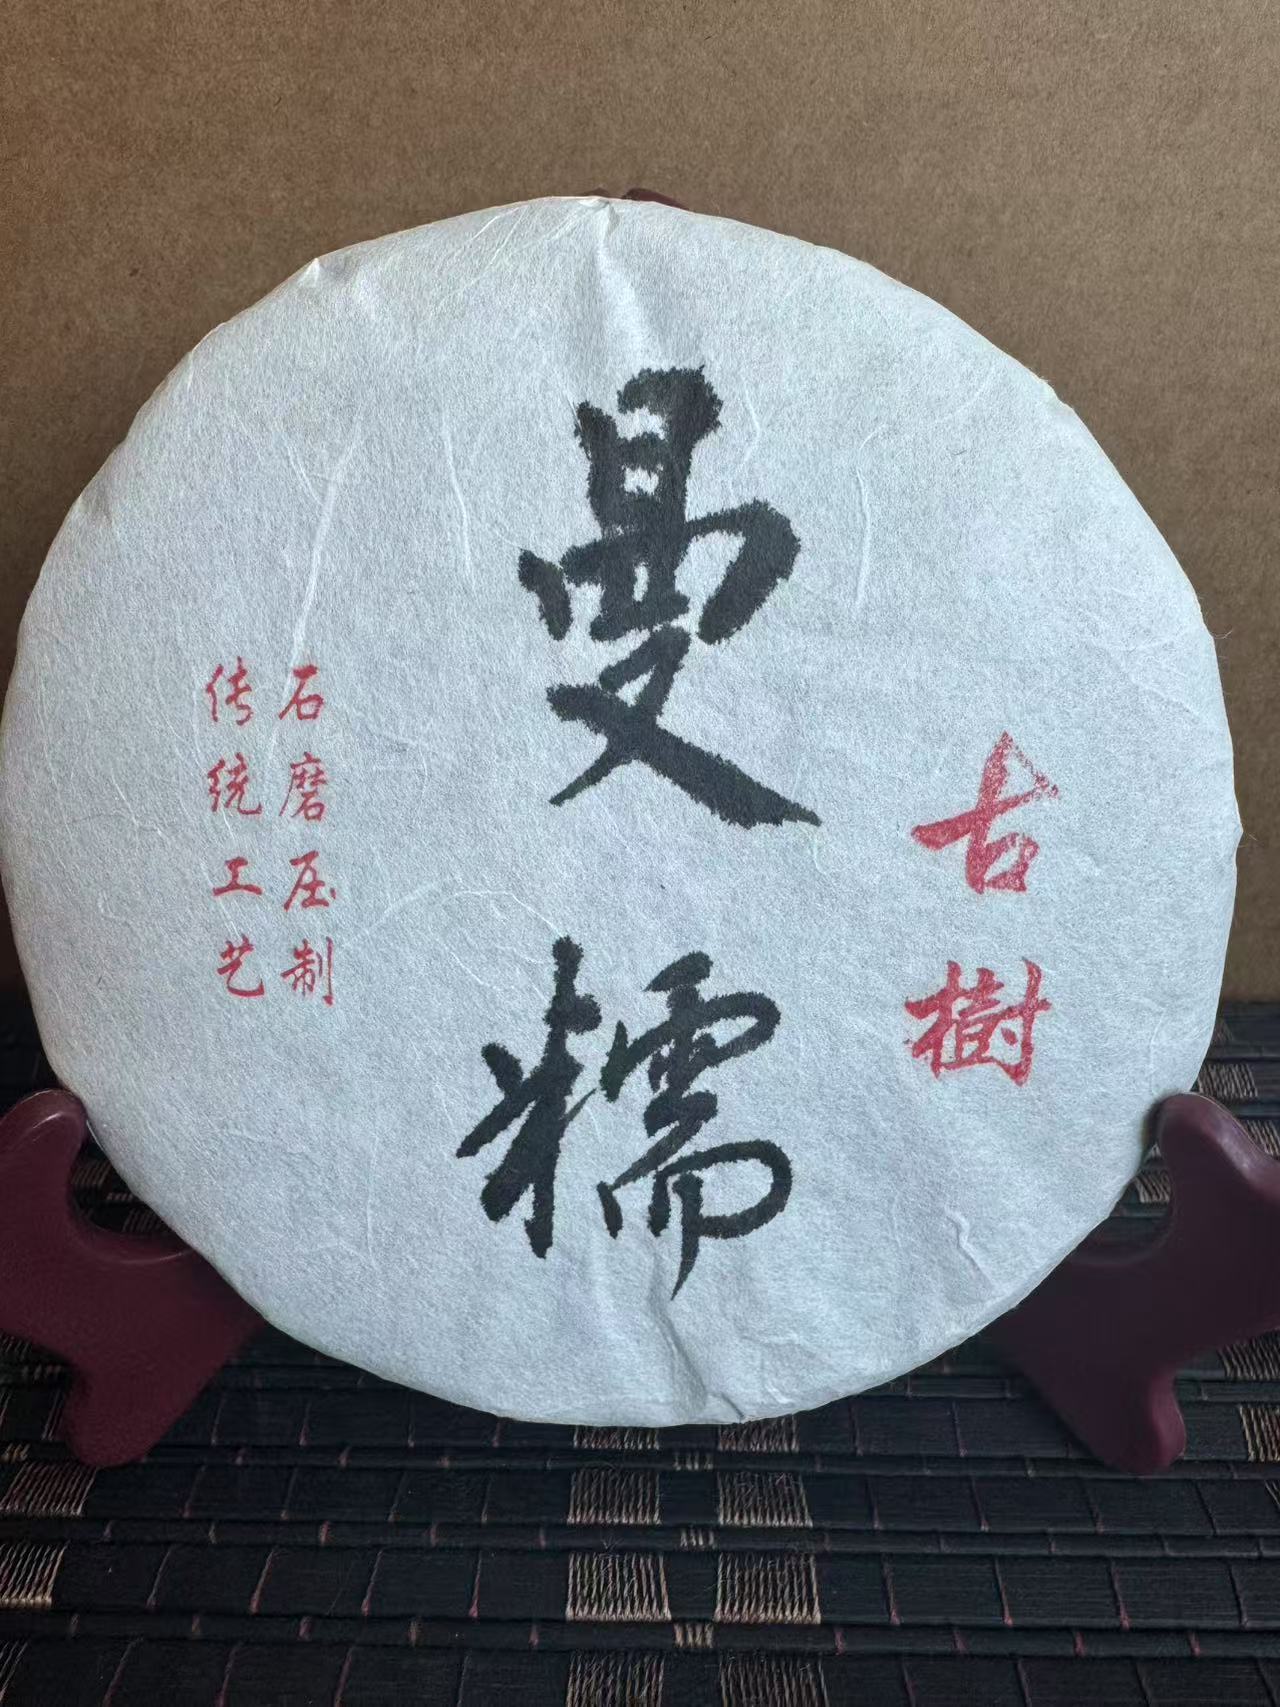 古樹
曼糯
石磨压制
传统工艺